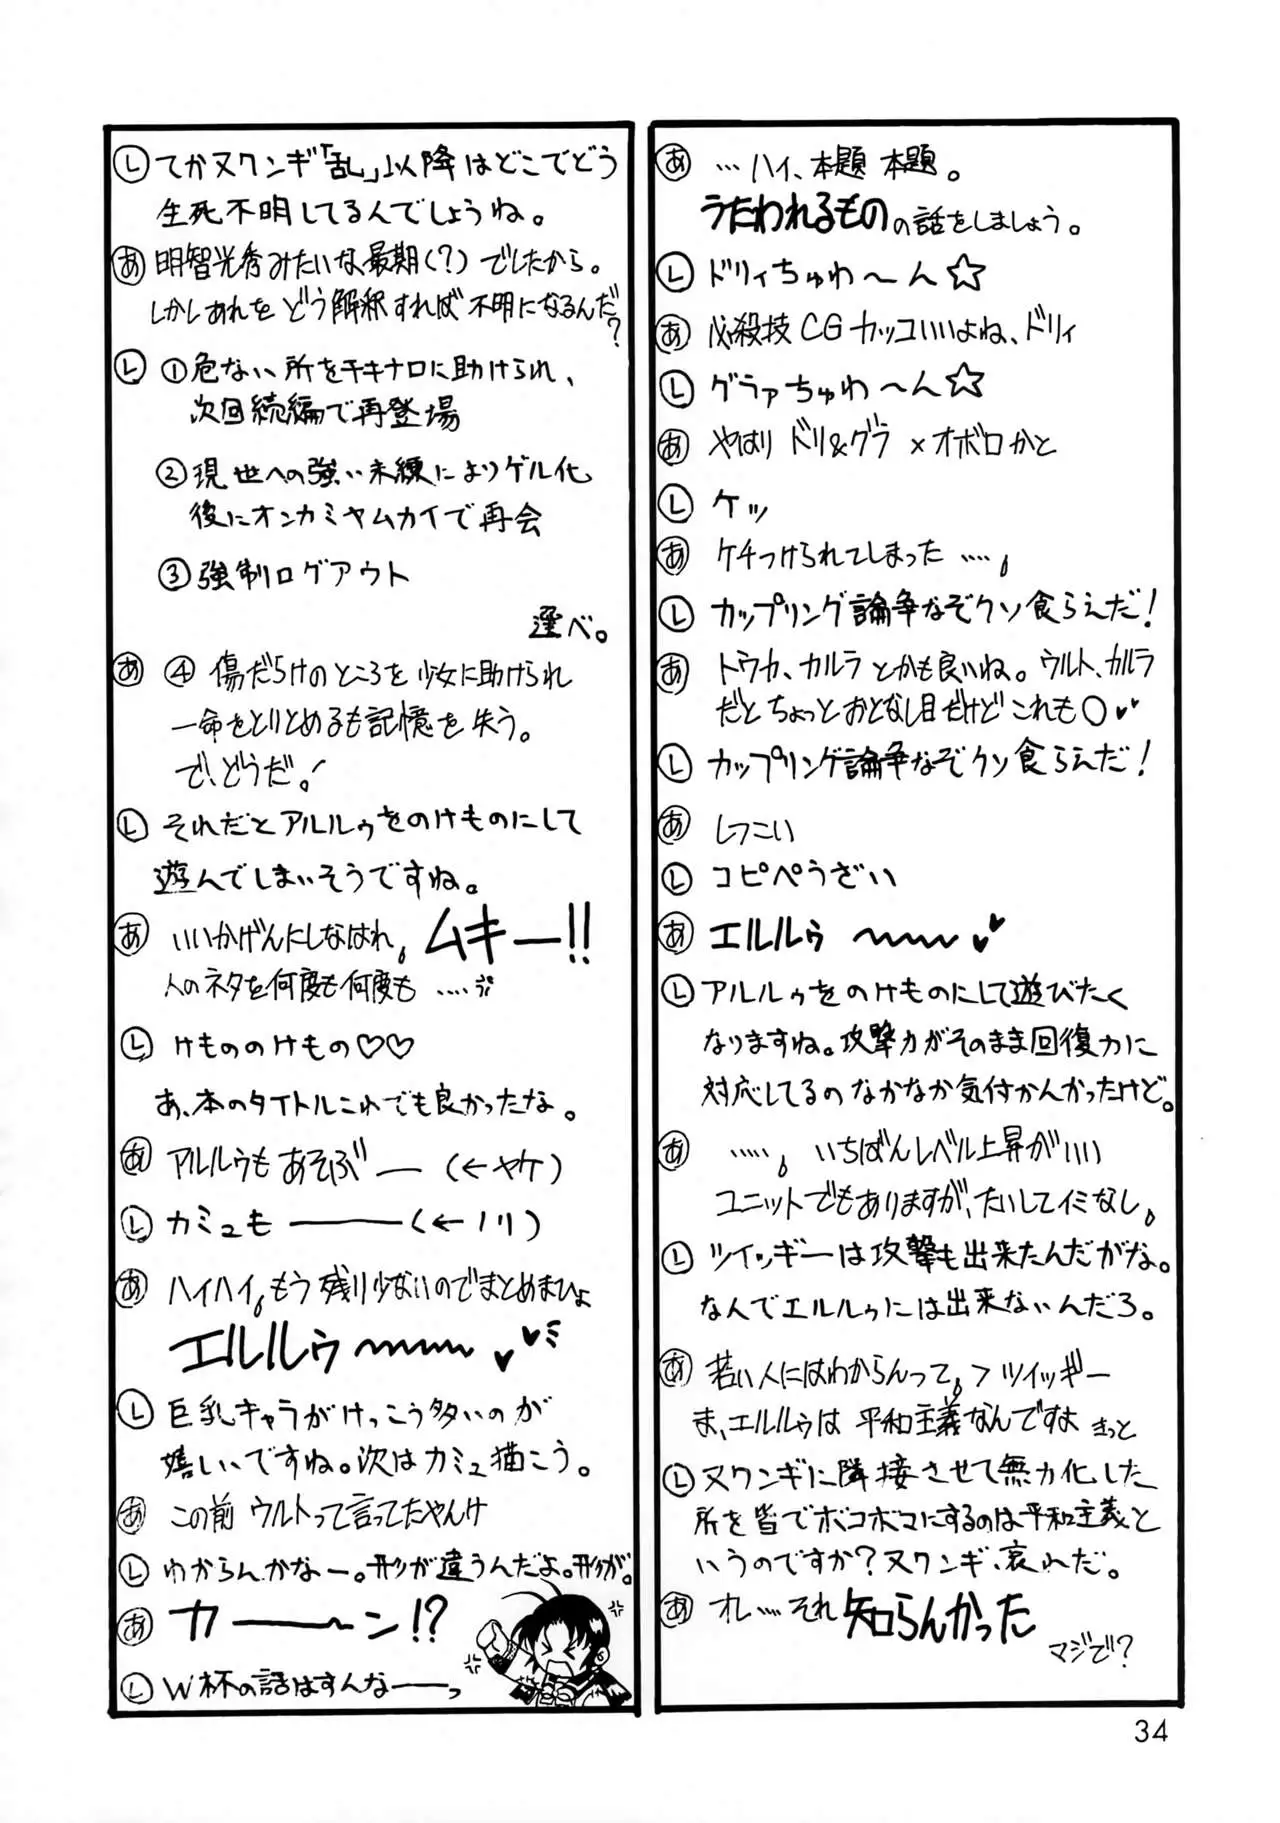 あ …ハイ、本題 本題。
うたわれるものの話をしましょう。
L ドリィちゅわ〜ん☆
あ 必殺技CGカッコいいよね、ドリィ
L グラァちゅわ〜ん☆
あ やはり ドリ&グラ×オボロかと
L ケッ
あ ケチつけられてしまった……。
L カップリング論争なぞクソ食らえだ!
あ トウカ、カルラとかも良いね。ウルト、カルラ
だとちょっとおとなし目だけどこれも○♥♥
L カップリング論争なぞクソ食らえだ!
あ しつこい
L コピペうざい
あ エルルゥ 〜〜〜♥♥
L アルルゥをのけものにして遊びたく
なりますね。攻撃力がそのまま回復力に
対応してるのなかなか気付かんかったけど。
あ ……。いちばんレベル上昇がいい
ユニットでもありますが、たいしてイミなし。
L ツイッギーは攻撃も出来たんだがな。
なんでエルルゥには出来ないんだろ。
あ 若い人にはわからんって。>ツイッギー
ま、エルルゥは 平和主義なんですよ きっと
L ヌワンギに隣接させて無力化した
所を皆でボコボコにするのは平和主義と
いうのですか?ヌワンギ、哀れだ。
あ オレ……それ知らんかった
マジで?
L てかヌワンギ「乱」以降はどこでどう
生死不明してるんでしょうね。
あ 明智光秀みたいな最期(?)でしたから。
しかしあれをどう解釈すれば不明になるんだ?
L ①危ない所をチキナロに助けられ、
次回続編で再登場
②現世への強い未練によりゲル化
後にオンカミヤムカイで再会
③強制ログアウト
選べ。
あ ④ 傷だらけのところを少女に助けられ
一命をとりとめるも記憶を失う。
で、どうだ!
L それだとアルルゥをのけものにして
遊んでしまいそうですね。
あ いいかげんにしなはれ。ムキー!!
人のネタを何度も何度も……
L けもののけもの♡♡
あ、本のタイトルこれでも良かったな。
あ アルルゥもあそぶ— (←ヤケ)
L カミュも———(←ノリ)
あ ハイハイ。もう残り少ないのでまとめまひょ
エルルゥ〜〜〜♥♥
L 巨乳キャラがけっこう多いのが
嬉しいですね。次はカミュ描こう。
あ この前 ウルトって言ってたやんけ
L わからんかなー。形が違うんだよ。形が。
あ カ——〜ン!?
L W杯の話はすんなー—っ
34